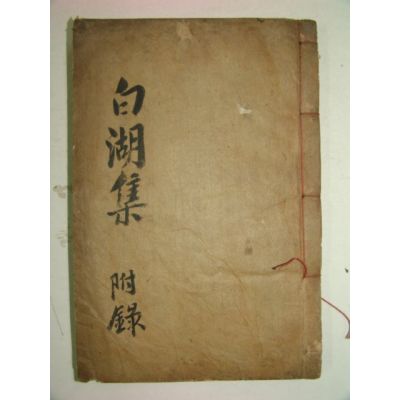 白湖集
附録